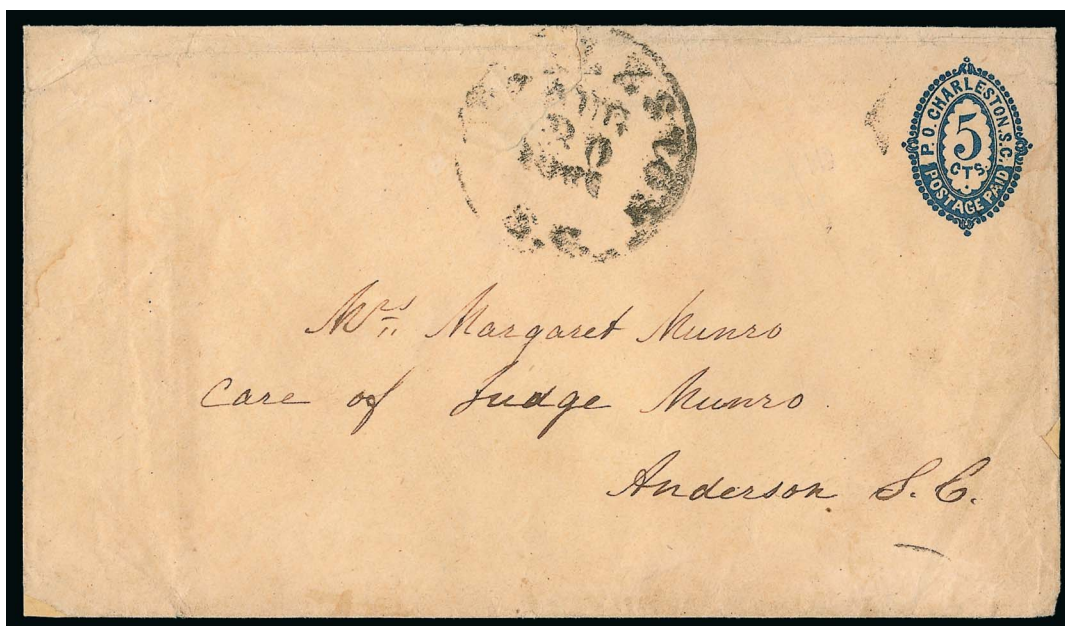 AUG
30
S.C.
P.O. CHARLESTON. S.C.
5
CTS.
POSTAGE PAID
Mrs Margaret Munro
Care of Judge Munro
Anderson S.C.